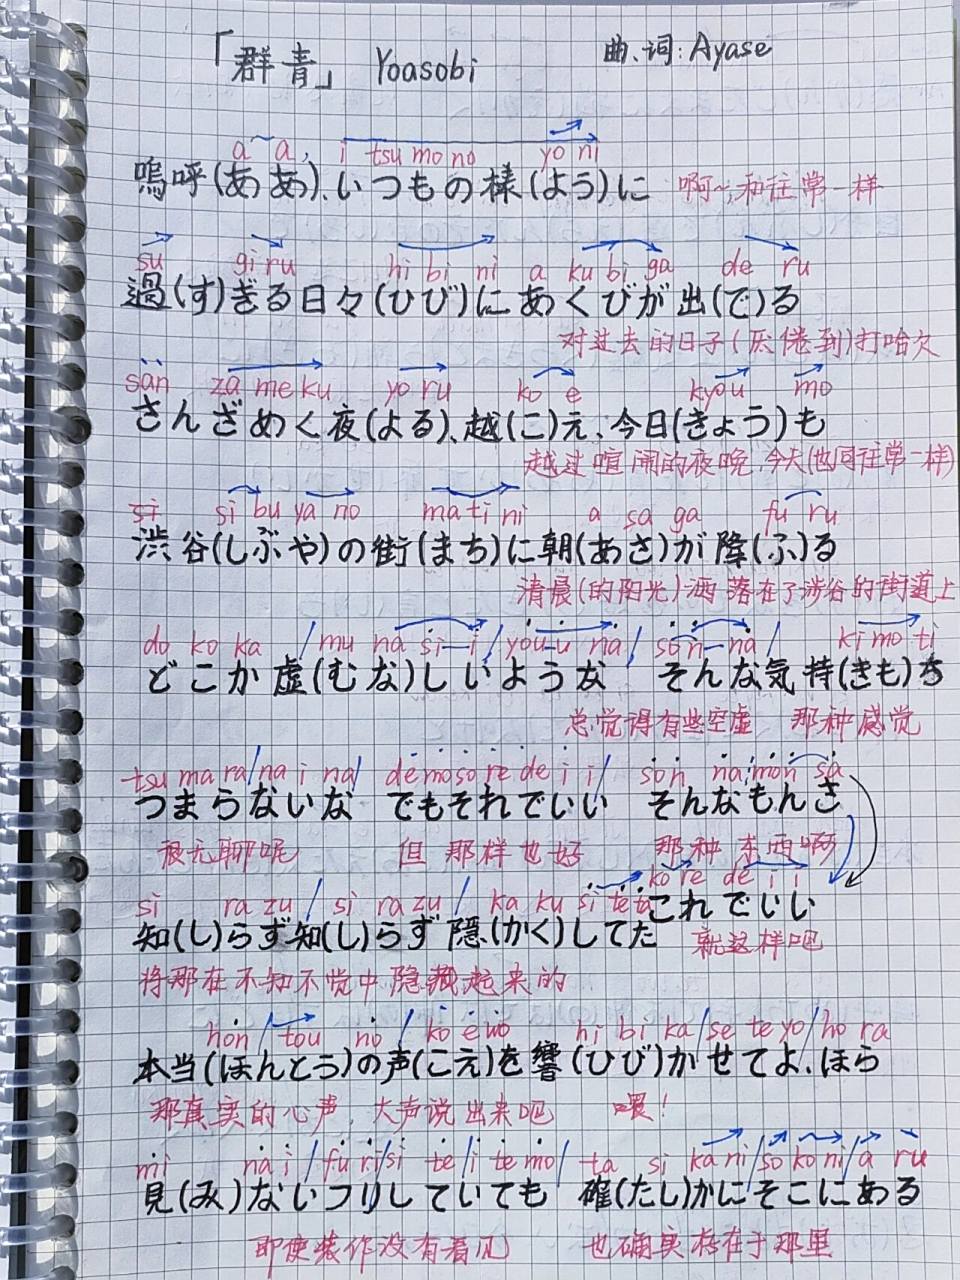 「群青」 Yoasobi 曲、词: Ayase
a ~ a, i tsu mo no yo ni
嗚呼(ああ)、いつもの様(よう)に 啊~,和往常一样
su gi ru hi bi ni a ku bi ga de ru
過(す)ぎる日々(ひび)に あくびが出(で)る
对过去的日子(厌倦到)打哈欠
san za me ku yo ru ko e kyou mo
さんざめく夜(よる)、越(こ)え、今日(きょう)も
越过喧闹的夜晚,今天(也同往常一样)
si bu ya no ma ti ni a sa ga fu ru
渋谷(しぶや)の街(まち)に朝(あさ)が降(ふ)る
清晨(的阳光)洒落在了涉谷的街道上
do ko ka / mu na si-i / you-u na / son-na / ki mo ti
どこか虚(むな)しいような そんな気持(きも)ち
总觉得有些空虚 那种感觉
tsu ma ra / na i na / de mo so re de i i / son na / mon sa
つまらないな でもそれでいい そんなもんさ
很无聊呢 但那样也好 那种东西啊
ko re de i i
si ra zu / si ra zu / ka ku si te ta これでいい
知(し)らず知(し)らず隠(かく)してた 就这样吧
将那在不知不觉中隐藏起来的
hon / tou no / ko e wo hi bi ka / se te yo / ho ra
本当(ほんとう)の声(こえ)を響(ひび)かせてよ、ほら
那真实的心声,大声说出来吧 喂!
mi na i / fu ri / si te / i te mo / ta si ka ni / so ko ni / a ru
見(み)ないフリしていても 確(たし)かにそこにある
即使装作没有看见 也确实存在于那里